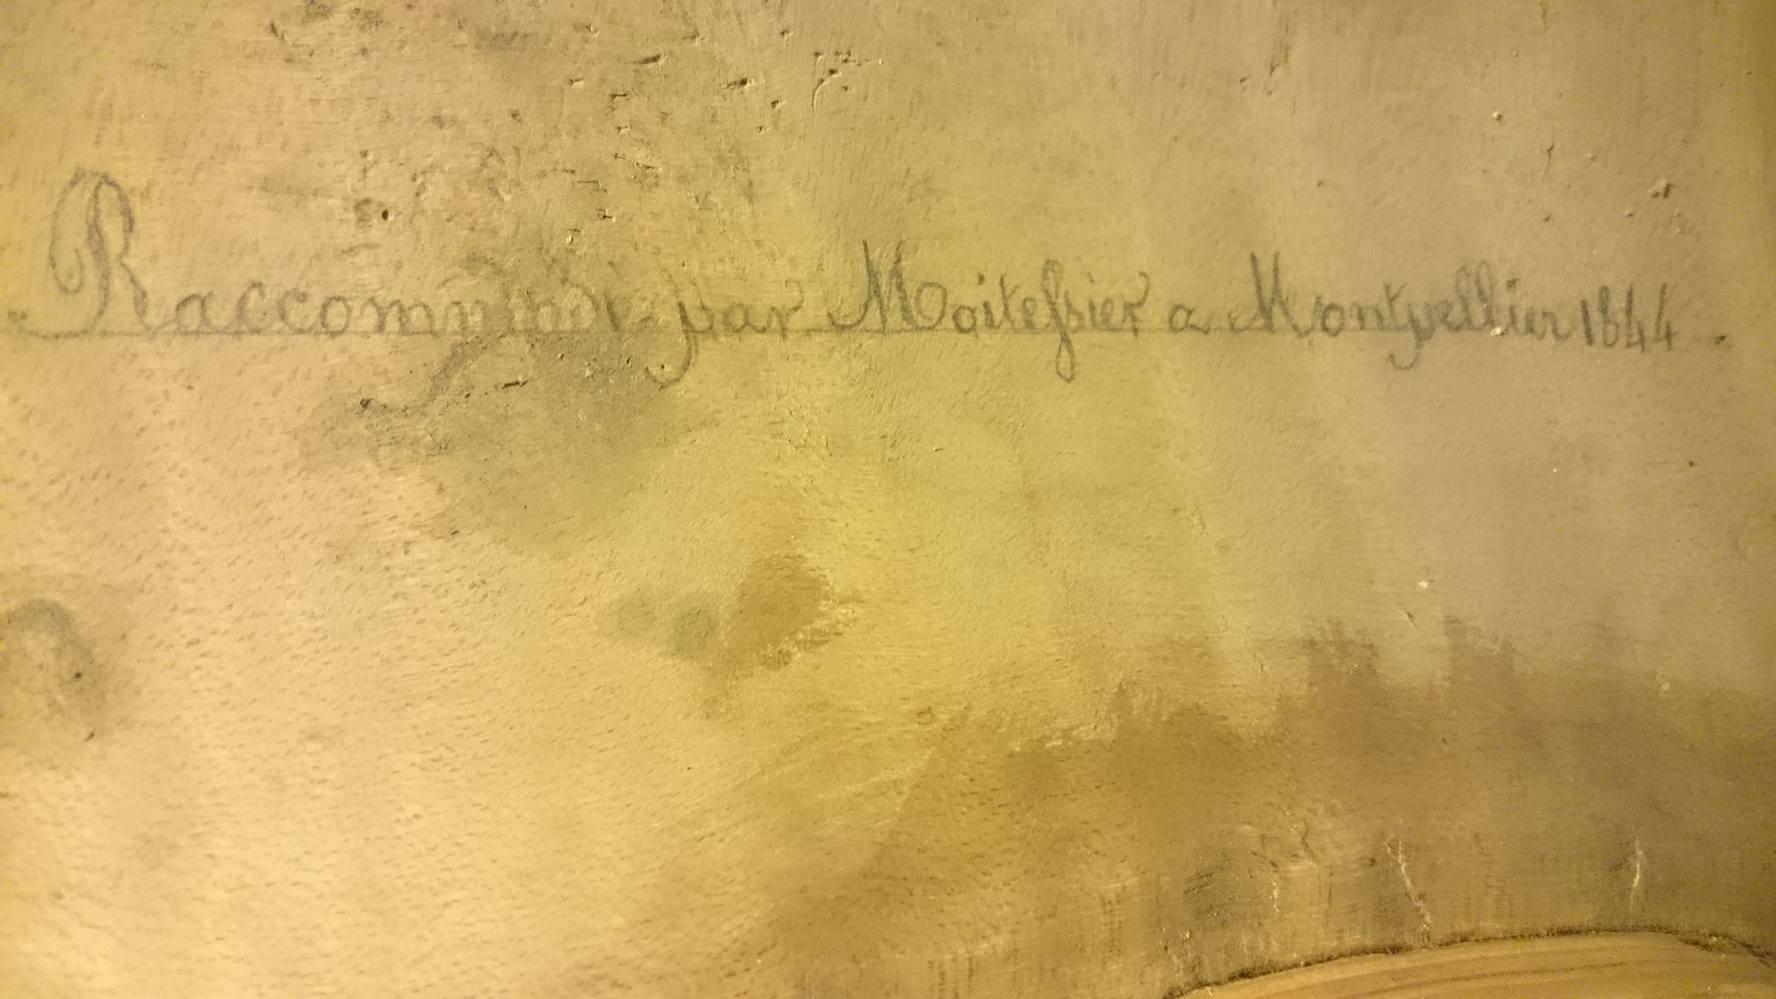 Raccommodé par Moitessier a Montpellier 1844